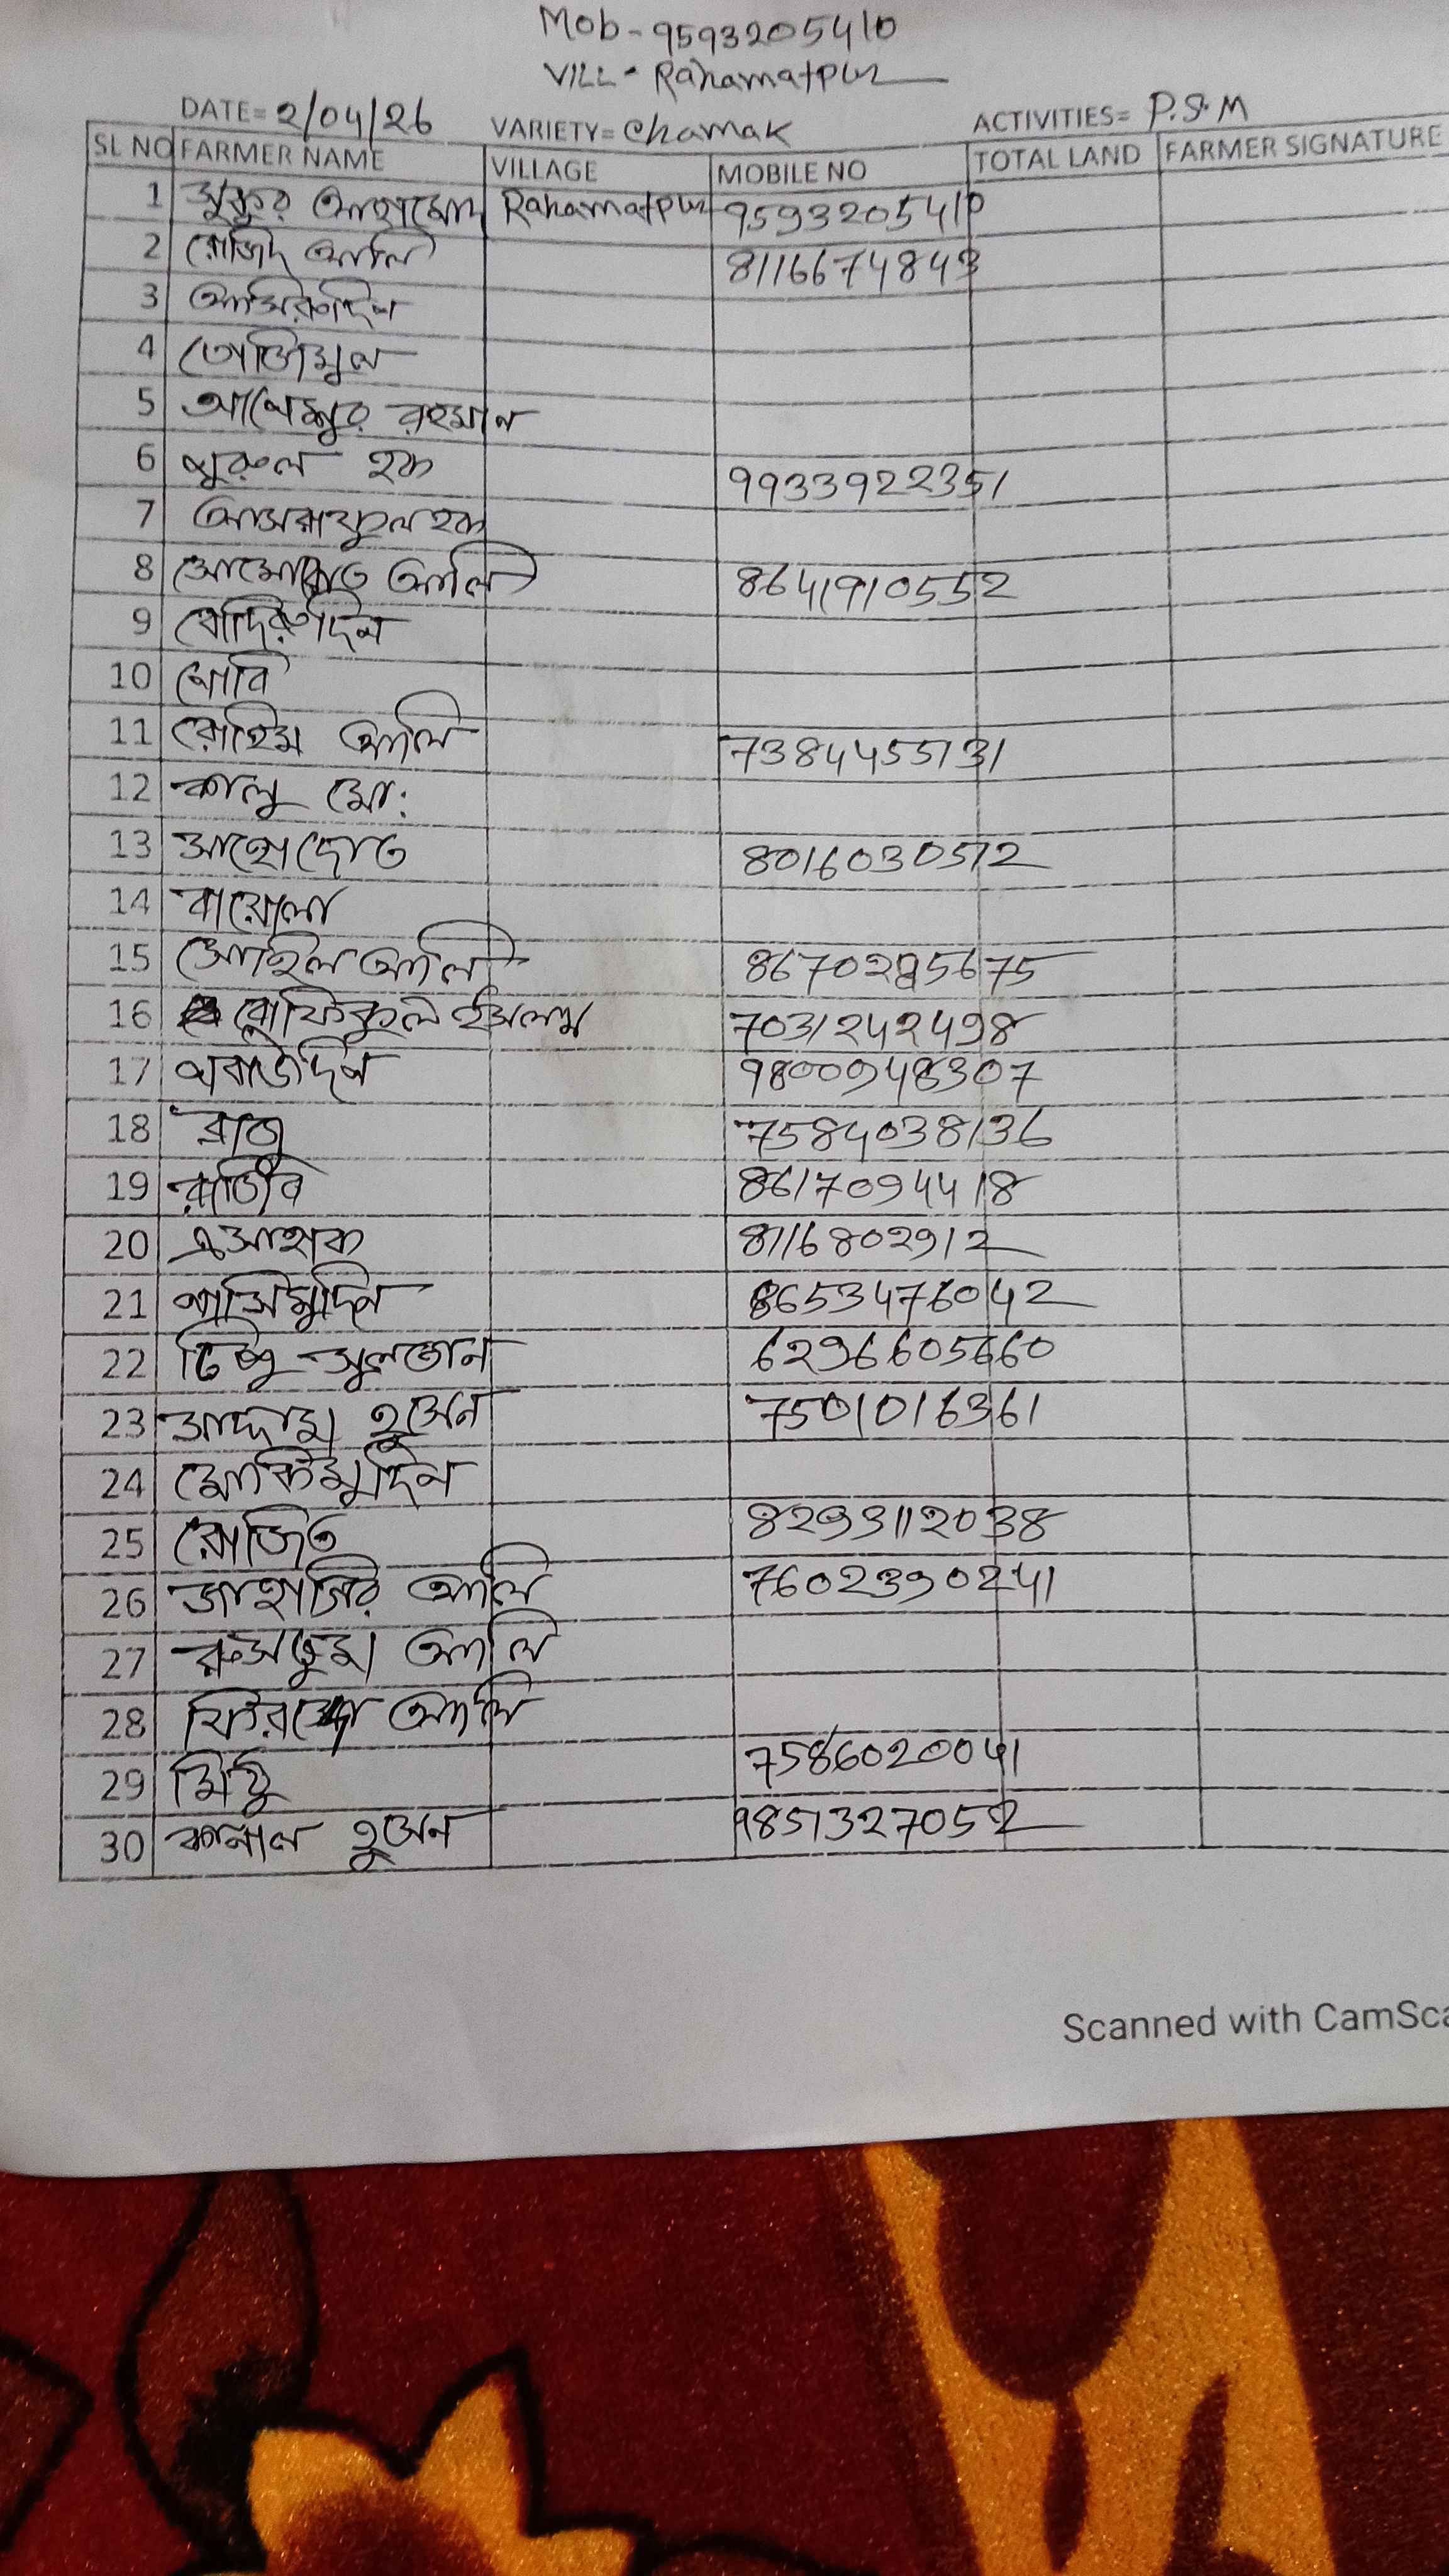 Mob - 9593205410
VILL - Rahamatpur
DATE= 2/04/26 VARIETY= Chamak ACTIVITIES= P.S.M
SL NO FARMER NAME VILLAGE MOBILE NO TOTAL LAND FARMER SIGNATURE
1 সুকুর আহামোদ Rahamatpur 9593205410
2 রোজিদ আলি 8116674843
3
4 তোজিমুল
5 রহমান
6 নুরুল হক 9933922351
7 আসরাফুল হক
8 আলি 8641910552
9 বোদিরুদ্দিন
10
11 রোহিম আলি 7384455131
12 কালু মো:
13 8016030572
14
15 সোহিল আলি
16 রোফিকুল ইসলাম 7031242498
17 9800948307
18 রাজু 7584038136
19 রাজিব 8617094418
20 এসাহাক 8116802912
21 8653476042
22 টিপু সুলতান 6296605660
23 সাদ্দাম হুসেন 7501016361
24 মোকিমুদ্দিন
25 রোজিত 8293112038
26 আলি 7602390241
27 রুসতুম আলি
28 আলি
29 মিঠু 7586020041
30 কামাল হুসেন 9851327052
Scanned with CamSca